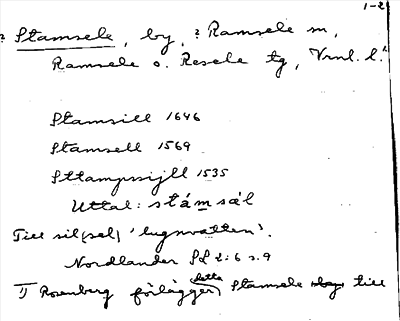 1-2
? Stamsele, by, ? Ramsele sn,
Ramsele o. Resele tg, Vrnl. l.
Stamsill 1646
Stamsell 1569
Sttampssijll 1535
Uttal: stámsäl
Till sil(sel) 'lugnvatten'.
Nordlander SL 2:6 s.9
Rosenberg förlägger detta Stamsele till